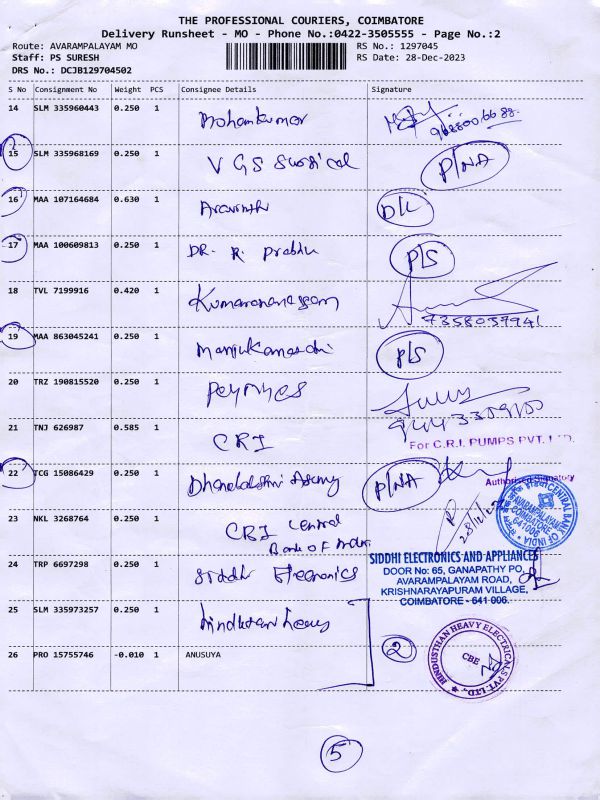 THE PROFESSIONAL COURIERS, COIMBATORE
Delivery Runsheet - MO - Phone No.:0422-3505555 - Page No.:2
Route: AVARAMPALAYAM MO
Staff: PS SURESH
DRS No.: DCJB129704502
RS No.: 1297045
RS Date: 28-Dec-2023
S No Consignment No Weight PCS Consignee Details Signature
14 SLM 335960443 0.250 1 Mohankumar
15 SLM 335968169 0.250 1 VGS Surgical P/NA
16 MAA 107164684 0.630 1 Aravinth D/L
17 MAA 100609813 0.250 1 DR. R. Prabhu P/S
18 TVL 7199916 0.420 1
7358037941
19 MAA 863045241 0.250 1 P/S
20 TRZ 190815520 0.250 1
21 TNJ 626987 0.585 1 CRI
For C.R.I. PUMPS PVT. LTD.
Authorised Signatory
22 TCG 15086429 0.250 1 P/NA
23 NKL 3268764 0.250 1 CBI Central
Bank of India
CENTRAL BANK OF INDIA
AVARAMPALAYAM
COIMBATORE
641006
24 TRP 6697298 0.250 1 Siddhi Electronics
SIDDHI ELECTRONICS AND APPLIANCES
DOOR No: 65, GANAPATHY PO,
AVARAMPALAYAM ROAD,
KRISHNARAYAPURAM VILLAGE,
COIMBATORE - 641 006.
25 SLM 335973257 0.250 1 hindustan heavy
HINDUSTHAN HEAVY ELECTRICALS PVT. LTD.
CBE
26 PRO 15755746 -0.010 1 ANUSUYA
2
5